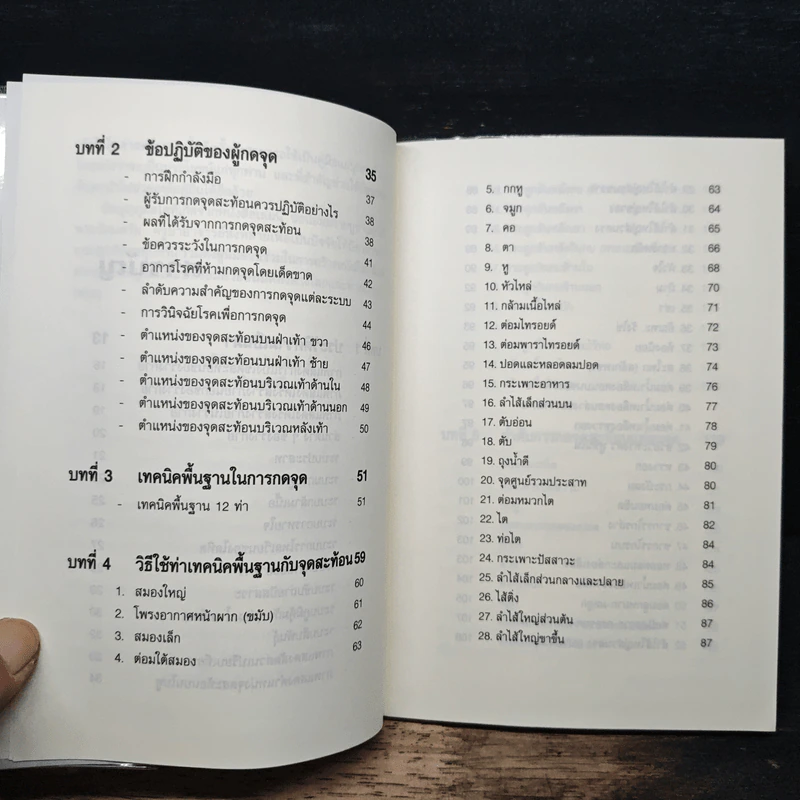 บทที่ 2 ข้อปฏิบัติของผู้กดจุด 35
- การฝึกกำลังมือ 37
- ผู้รับการกดจุดสะท้อนควรปฏิบัติอย่างไร 38
- ผลที่ได้รับจากการกดจุดสะท้อน 38
- ข้อควรระวังในการกดจุด 41
- อาการโรคที่ห้ามกดจุดโดยเด็ดขาด 42
- ลำดับความสำคัญของการกดจุดแต่ละระบบ 43
- การวินิจฉัยโรคเพื่อการกดจุด 44
- ตำแหน่งของจุดสะท้อนบนฝ่าเท้า ขวา 46
- ตำแหน่งของจุดสะท้อนบนฝ่าเท้า ซ้าย 47
- ตำแหน่งของจุดสะท้อนบริเวณเท้าด้านใน 48
- ตำแหน่งของจุดสะท้อนบริเวณเท้าด้านนอก 49
- ตำแหน่งของจุดสะท้อนบริเวณหลังเท้า 50
บทที่ 3 เทคนิคพื้นฐานในการกดจุด 51
- เทคนิคพื้นฐาน 12 ท่า 51
บทที่ 4 วิธีใช้ท่าเทคนิคพื้นฐานกับจุดสะท้อน 59
1. สมองใหญ่ 60
2. โพรงอากาศหน้าผาก (ขมับ) 61
3. สมองเล็ก 62
4. ต่อมใต้สมอง 63
5. กกหู 63
6. จมูก 64
7. คอ 65
8. ตา 66
9. หู 68
10. หัวไหล่ 70
11. กล้ามเนื้อไหล่ 71
12. ต่อมไทรอยด์ 72
13. ต่อมพาราไทรอยด์ 73
14. ปอดและหลอดลมปอด 74
15. กระเพาะอาหาร 76
16. ลำไส้เล็กส่วนบน 77
17. ตับอ่อน 78
18. ตับ 79
19. ถุงน้ำดี 80
20. จุดศูนย์รวมประสาท 80
21. ต่อมหมวกไต 81
22. ไต 82
23. ท่อไต 84
24. กระเพาะปัสสาวะ 84
25. ลำไส้เล็กส่วนกลางและปลาย 85
26. ไส้ติ่ง 86
27. ลำไส้ใหญ่ส่วนต้น 87
28. ลำไส้ใหญ่ขาขึ้น 87